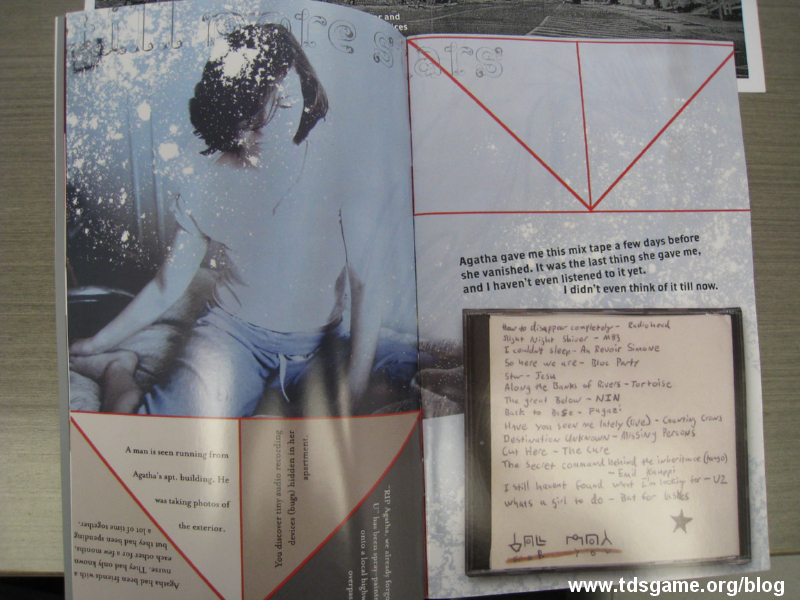 er and
ices
Agatha gave me this mix tape a few days before
she vanished. It was the last thing she gave me,
and I haven't even listened to it yet.
I didn't even think of it till now.
How to disappear completely - Radiohead
Slight Night Shiver - M83
I couldn't sleep - Au Revoir Simone
So here we are - Bloc Party
Star - Jesu
Along the Banks of Rivers - Tortoise
The great Below - NIN
Back to Base - Fugazi
Have you seen me lately (LIVE) - Counting Crows
Destination Unknown - Missing Persons
Cut Here - The Cure
The Secret command behind the inheritance
- Emil
I still havent found what I'm looking for - U2
Whats a girl to do - Bat for lashes
A man is seen running from
Agatha's apt. building. He
was taking photos of
the exterior.
You discover tiny audio recording
devices (bugs) hidden in her
apartment.
Agatha had been friends with a
nurse. They had only known
each other for a few months,
but they had been spending
a lot of time together.
"RIP Agatha, we already forgo
U" has been spray-painte
onto a local highw
overpa
www.tdsgame.org/blog